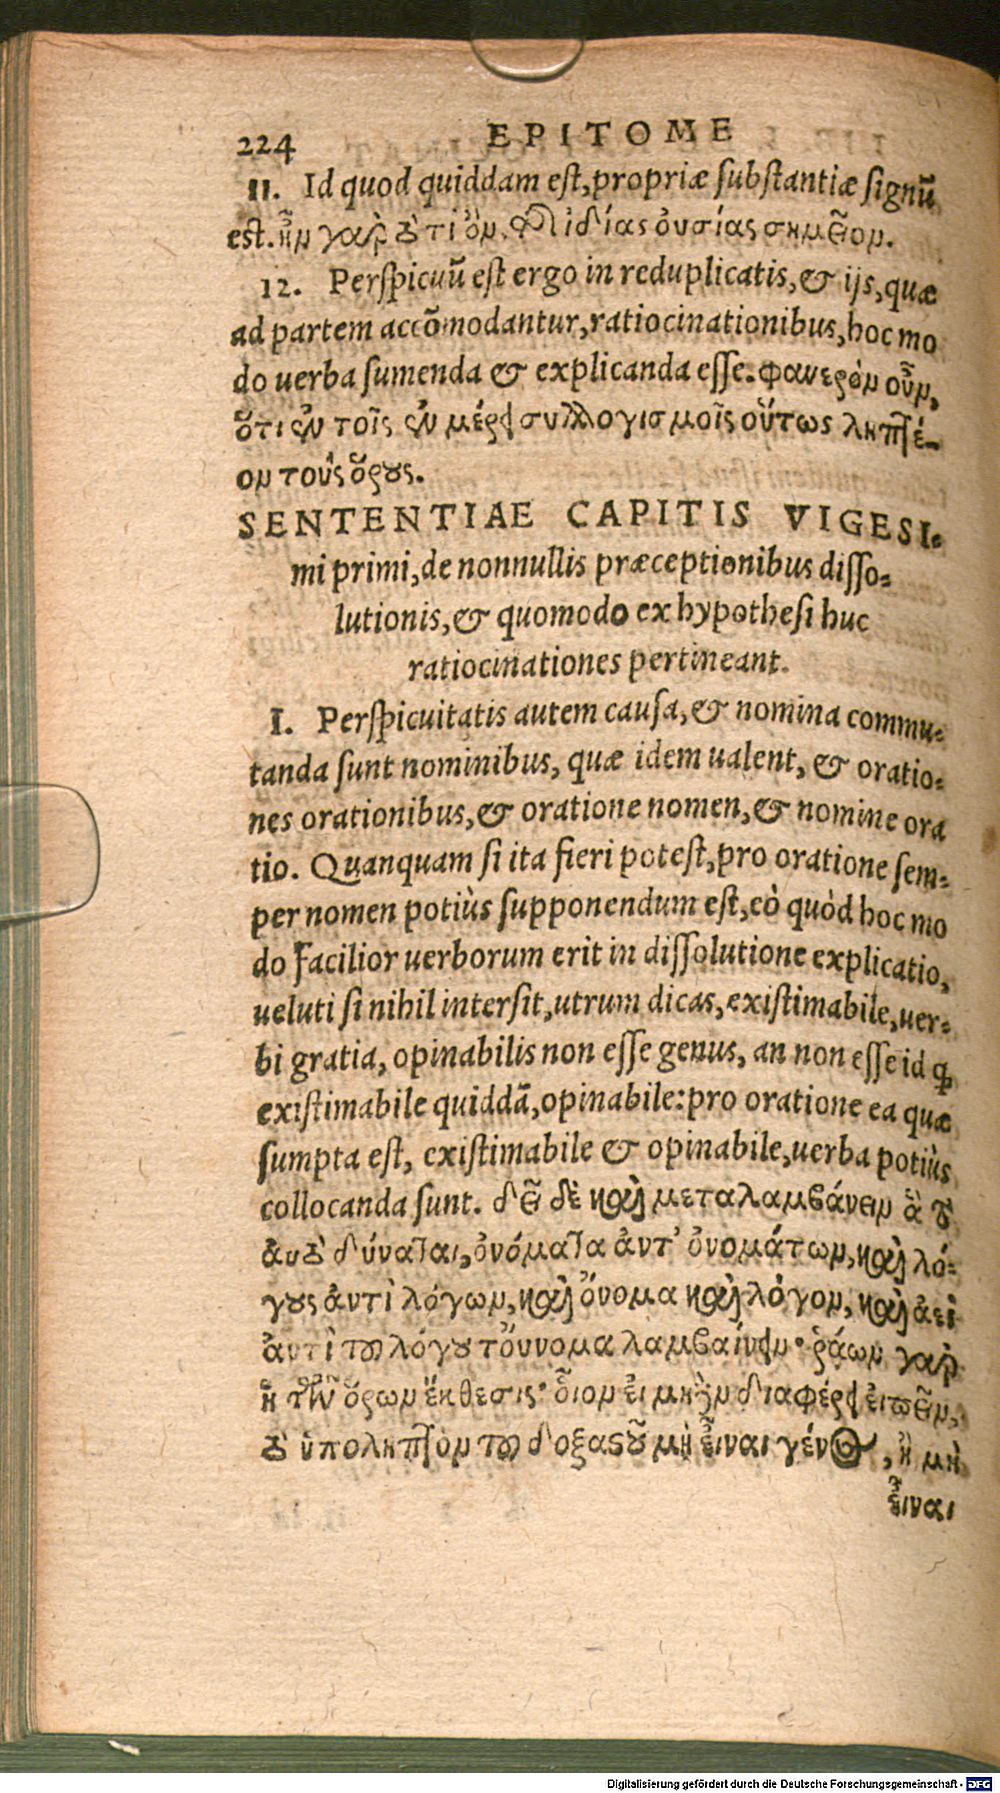 224 EPITOME
11. Id quod quiddam est, propriæ substantiæ signū
est. ἦν γὰρ τὸ τὶ ὂν, τῆς ἰδίας οὐσίας σημεῖον.
12. Perspicuū est ergo in reduplicatis, & ijs, quæ
ad partem accōmodantur, ratiocinationibus, hoc mo
do uerba sumenda & explicanda esse. φανερὸν οὖν,
ὅτι ἐν τοῖς ἐν μέρει συλλογισμοῖς οὕτως ληπτέ-
ον τοὺς ὅρους.
SENTENTIAE CAPITIS VIGESI-
mi primi, de nonnullis præceptionibus disso-
lutionis, & quomodo ex hypothesi huc
ratiocinationes pertineant.
1. Perspicuitatis autem causa, & nomina commu-
tanda sunt nominibus, quæ idem ualent, & oratio-
nes orationibus, & oratione nomen, & nomine ora
tio. Quanquam si ita fieri potest, pro oratione sem-
per nomen potiùs supponendum est, eò quòd hoc mo
do facilior uerborum erit in dissolutione explicatio,
ueluti si nihil intersit, utrum dicas, existimabile, uer-
bi gratia, opinabilis non esse genus, an non esse id ꝙ
existimabile quiddā, opinabile: pro oratione ea quæ
sumpta est, existimabile & opinabile, uerba potiùs
collocanda sunt. δεῖ δὲ καὶ μεταλαμβάνειν ἃ τὸ
αὐτὸ δύναται, ὀνόματα ἀντ' ὀνομάτων, καὶ λό-
γους ἀντὶ λόγων, καὶ ὄνομα καὶ λόγον, καὶ ἀεὶ
ἀντὶ τοῦ λόγου τοὔνομα λαμβάνειν· ῥάων γὰρ
ἡ τῶν ὅρων ἔκθεσις· οἷον εἰ μηδὲν διαφέρει εἰπεῖν,
τὸ ὑποληπτὸν τοῦ δοξαστοῦ μὴ εἶναι γένος, ἢ μὴ
εἶναι
Digitalisierung gefördert durch die Deutsche Forschungsgemeinschaft - DFG